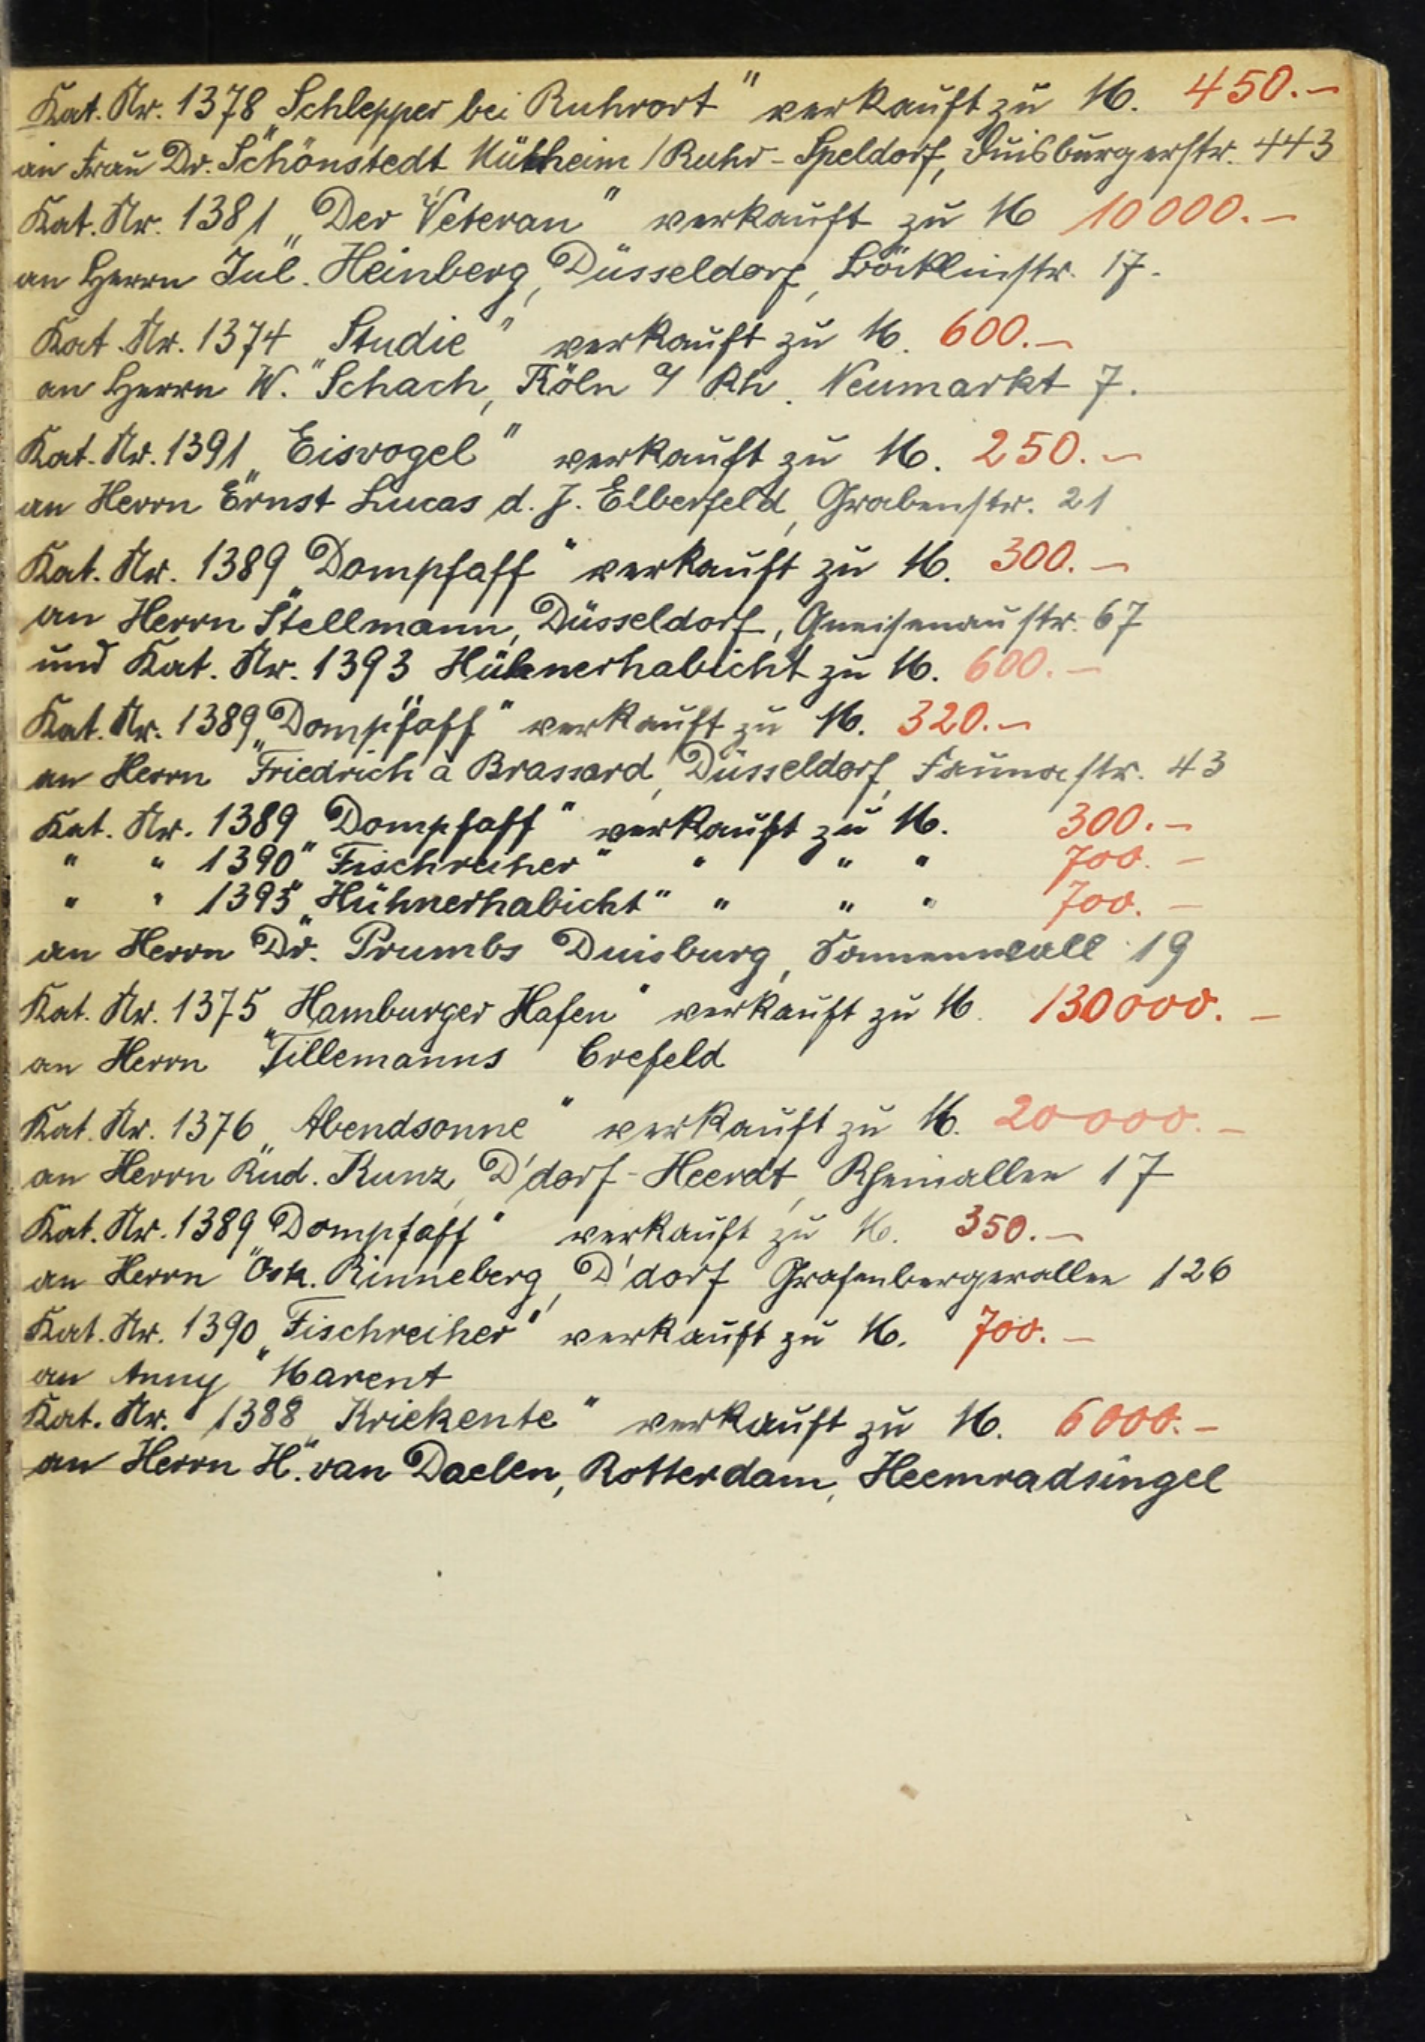 Kat. Nr. 1378 „Schlepper bei Ruhrort" verkauft zu M. 450.–
an Frau Dr. Schönstedt Mülheim / Ruhr - Speldorf, Duisburgerstr. 443
Kat. Nr. 1381 „Der Veteran" verkauft zu M 10000.–
an Herrn Jul. Heinberg, Düsseldorf, Böcklinstr. 17.
Kat. Nr. 1374 „Studie" verkauft zu M. 600.–
an Herrn W. Schach, Köln a/ Rh. Neumarkt 7.
Kat. Nr. 1391 „Eisvogel" verkauft zu M. 250.–
an Herrn Ernst Lucas d. J. Elberfeld, Grabenstr. 21
Kat. Nr. 1389 „Dompfaff" verkauft zu M. 300.–
an Herrn Stellmann, Düsseldorf, Gneisenaustr. 67
und Kat. Nr. 1393 Hühnerhabicht zu M. 600.–
Kat. Nr. 1389 „Dompfaff" verkauft zu M. 320.–
an Herrn Friedrich à Brassard, Düsseldorf, Faunastr. 43
Kat. Nr. 1389 „Dompfaff" verkauft zu M. 300.–
" " 1390 „Fischreiher" " " " 700.–
" " 1393 „Hühnerhabicht" " " " 700.–
an Herrn Dr. Prumbs Duisburg, Sonnenwall 19
Kat. Nr. 1375 „Hamburger Hafen" verkauft zu M. 130000.–
an Herrn Tillemanns Crefeld
Kat. Nr. 1376 „Abendsonne" verkauft zu M. 20000.–
an Herrn Rud. Kunz, D'dorf - Heerdt, Rheinallee 17
Kat. Nr. 1389 „Dompfaff" verkauft zu M. 350.–
an Herrn Osk. Rinneberg, D'dorf Grafenbergerallee 126
Kat. Nr. 1390 „Fischreiher" verkauft zu M. 700.–
an Anny Marent
Kat. Nr. 1388 „Kriekente" verkauft zu M. 6000.–
an Herrn H. van Daelen, Rotterdam, Heemradsingel